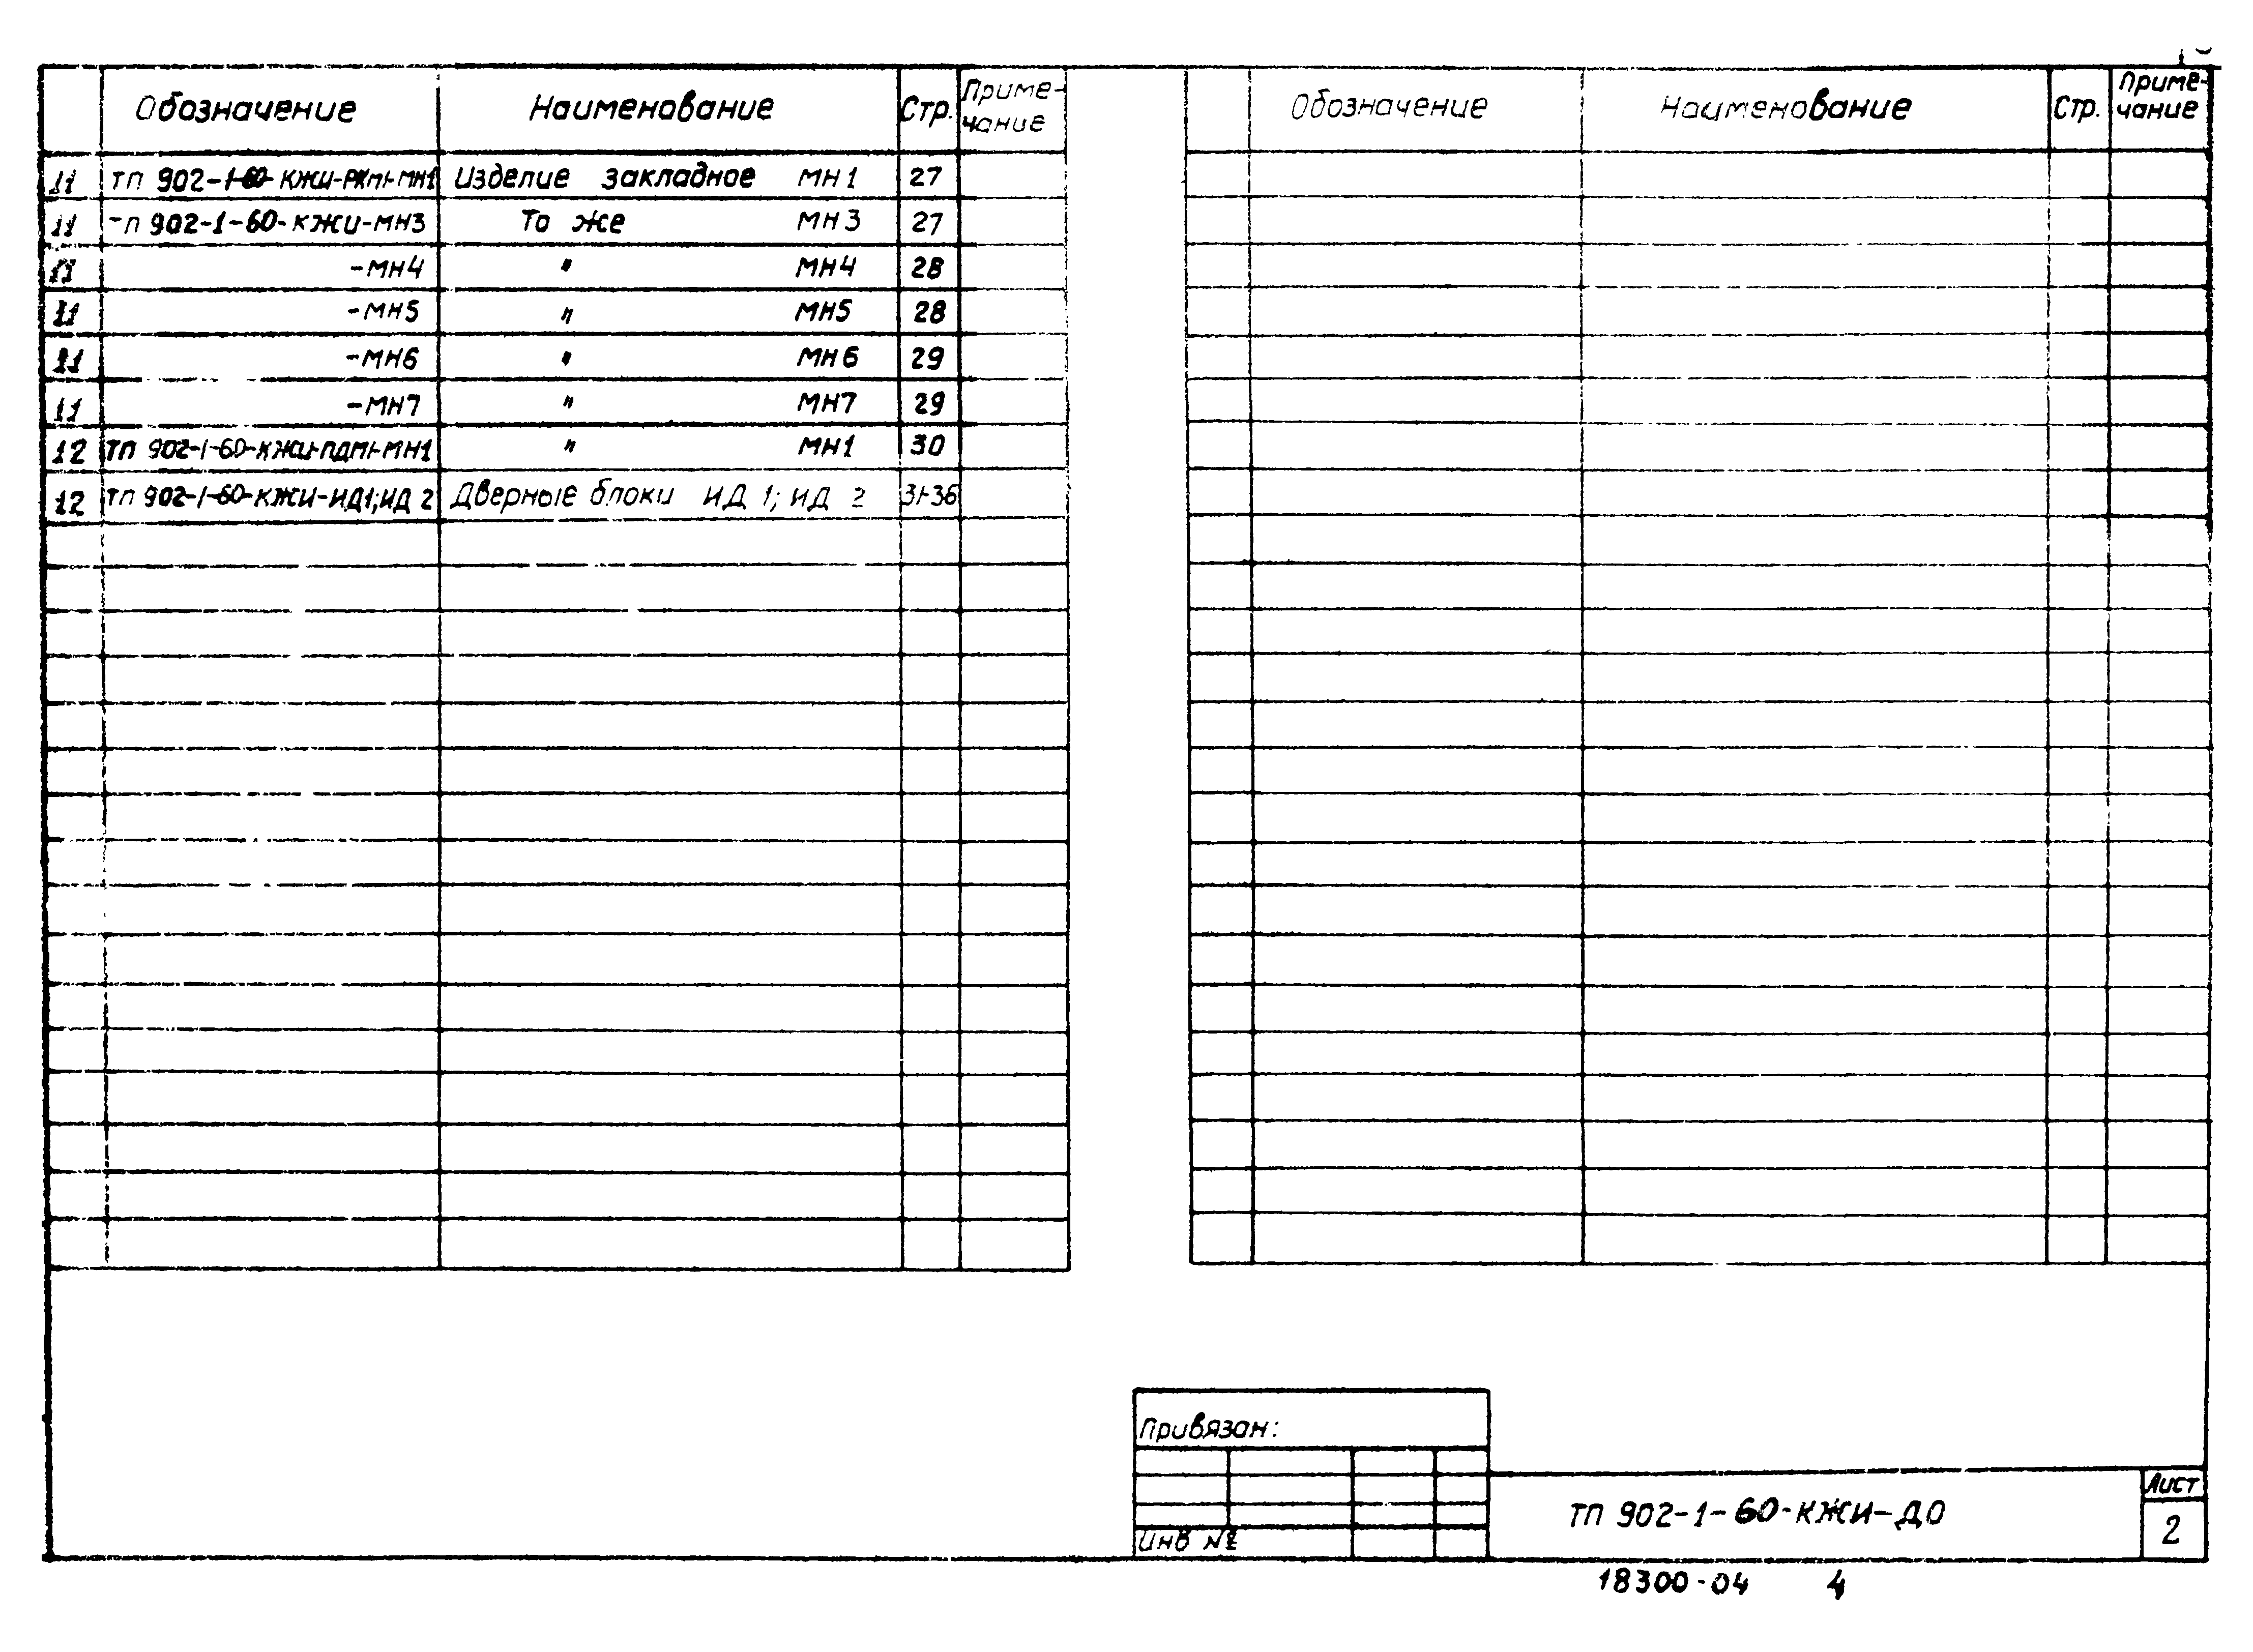 Обозначение Наименование Стр. Приме-
чание
11 ТП 902-1-60-КЖИ-РКМ1-МН1 Изделие закладное МН1 27
11 ТП 902-1-60-КЖИ-МН3 То же МН3 27
11 -МН4 " МН4 28
11 -МН5 " МН5 28
11 -МН6 " МН6 29
11 -МН7 " МН7 29
12 ТП 902-1-60-КЖИ-ПДМ1-МН1 " МН1 30
12 ТП 902-1-60-КЖИ-ИД1;ИД 2 Дверные блоки ИД 1; ИД 2 31-36
Обозначение Наименование Стр. Приме-
чание
Привязан:
Инв №
ТП 902-1-60-КЖИ-ДО
Лист
2
18300-04 4